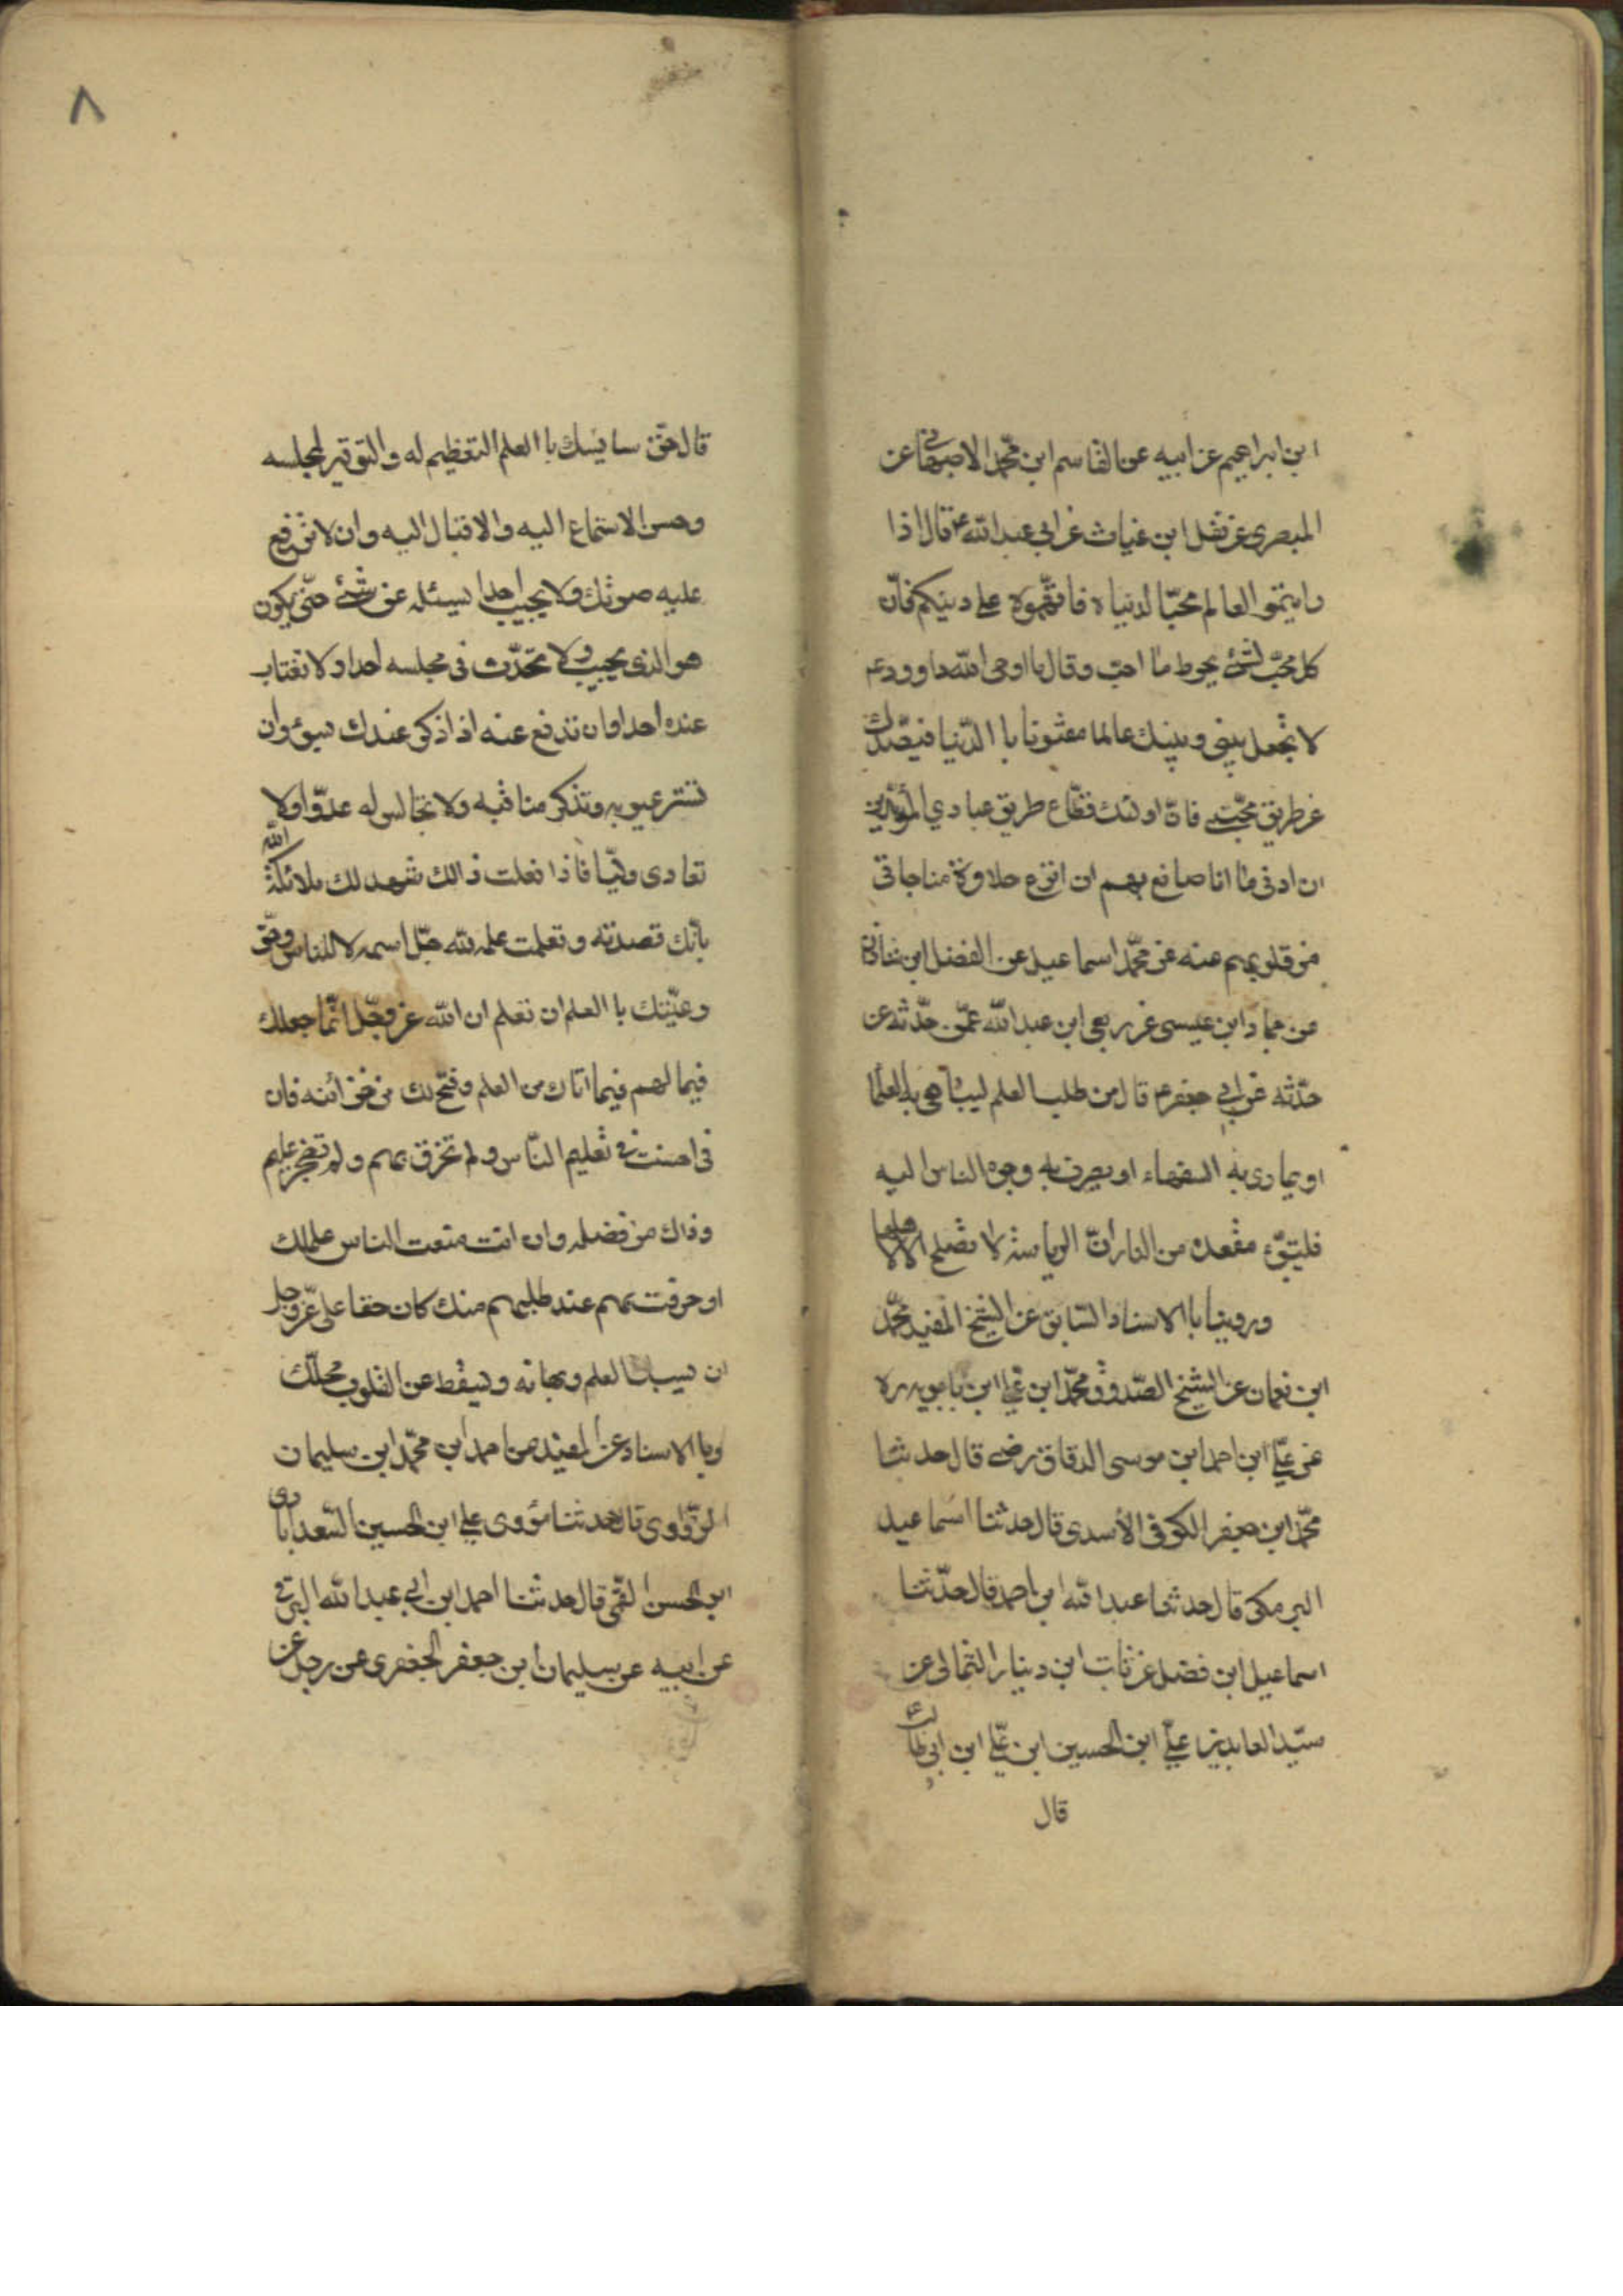 ابن ابراهيم عن ابيه عن القاسم ابن محمّد الاصبهانى عن
المبصرى عن نفل ابن غياث عن ابى عبد الله ع قال اذا
رايتمو العالم محبّا لدنياه فاتهموه على دينكم فانّ
كل محبّ لشئ يحوط ما احبّ وقال ما اوحى الله داوود ع
لا تجعل بينى وبينك عالما مفتونا با الدّنيا فيصّدك
عن طريق محبّتى فانّ اولئك قطّاع طريق عبادي المريدين
ان ادنى ما انا صانع بهم ان انزع حلاوة مناجاتى
من قلوبهم عنه عن محمّد اسماعيل عن الفضل ابن شاذان
عن حماد ابن عيسى عن ربعى ابن عبد الله عمّن حدّثه عن
حدّثه عن ابى جعفر ع قال من طلب العلم ليباهى به العلما
او يمارى به السفهاء او يصرف به وجوه الناس اليه
فليتبوّء مقعده من النار انّ الرياسة لا تصلح الا لاهلها
وروينا با الاسناد السّابق عن الشيخ المفيد محمّد
ابن نعمان عن الشيخ الصّدوق محمّد ابن علي ابن بابويه ره
عن عليّ ابن احمد ابن موسى الدقاق رضى قال حدثنا
محمّد ابن جعفر الكوفى الأسدى قال حدثنا اسماعيل
البرمكى قال حدثنا عبد الله ابن احمد قال حدّثنا
اسماعيل ابن فضل عن ثابت ابن دينار الثمالى عن
سيّد العابدين عليّ ابن الحسين ابن عليّ ابن ابى طالب ع
قال
قال حقّ سايسك با العلم التعظيم له والتوقير لمجلسه
وحسن الاستماع اليه والاقبال اليه وان لا ترفع
عليه صوتك ولا يجيب احدا يسئله عن شئ حتّى يكون
هو الذى يجيب ولا تحدّث فى مجلسه احدا ولا تغتاب
عنده احدا وان تدفع عنه اذا ذكر عندك بسوء وان
تستر عيوبه وتذكر مناقبه ولا تجالس له عدوّا ولا
تعادى وليّا فاذا فعلت ذالك شهد لك ملائكة الله
بأنّك قصدته وتعلمت علمه لله جلّ اسمه لا للناس وحق
وعيّتك با العلم ان تعلم ان الله عز وجّل انّما جعلك
فيما لهم فيما اتاك من العلم وفتح لك من خزائنه فان
فى احسنت فى تعليم النّاس ولم تخرق بهم ولم تضجر عليهم
وذاك من فضله وان انت منعت الناس علمك
او خرقت بهم عند طلبهم منك كان حقا على عزّ وجل
ان يسبك العلم وبهائه ويسقط عن القلوب محلّك
وبا الاسناد عن المفيد عن احمد ابن محمّد ابن سليمان
قال حدثنا مؤدى علي ابن الحسين السّعد ابادى
ابو الحسن القمّى قال حدثنا احمد ابن ابى عبد الله البرقى
عن ابيه عن سليمان ابن جعفر الجعفرى عن رجل عن
٨